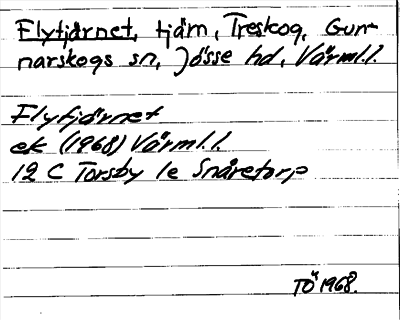 Flytjärnet, tjärn, Treskog, Gun-
narskogs sn, Jösse hd, Värml.l.
Flytjärnet
ek (1968) Värml.l.
12 C Torsby 1e Snåretorp
TÖ 1968.